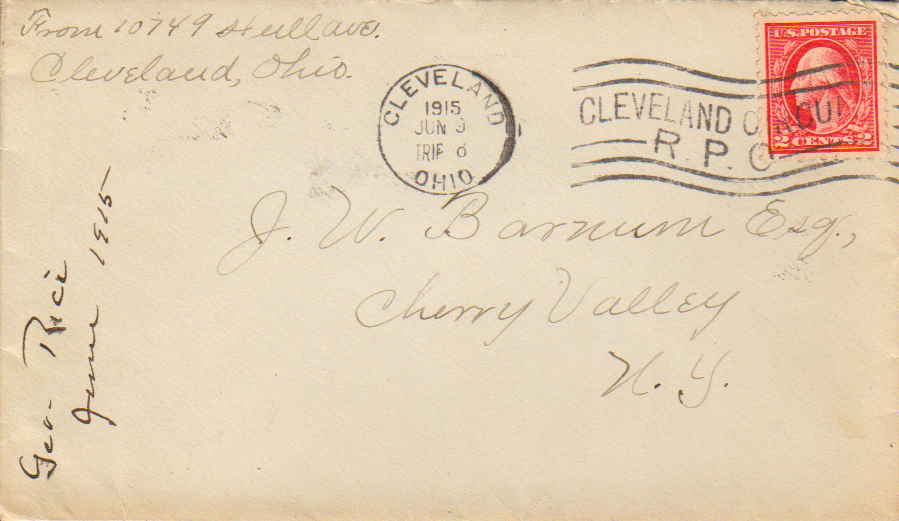 From 10749 Hull ave.
Cleveland, Ohio.
U.S. POSTAGE
2 CENTS 2
CLEVELAND
1915
JUN
TRIP 6
OHIO
CLEVELAND
R. P. O
J. W. Barnum Esq.,
Cherry Valley
N. Y.
Geo. Rice
June 1915